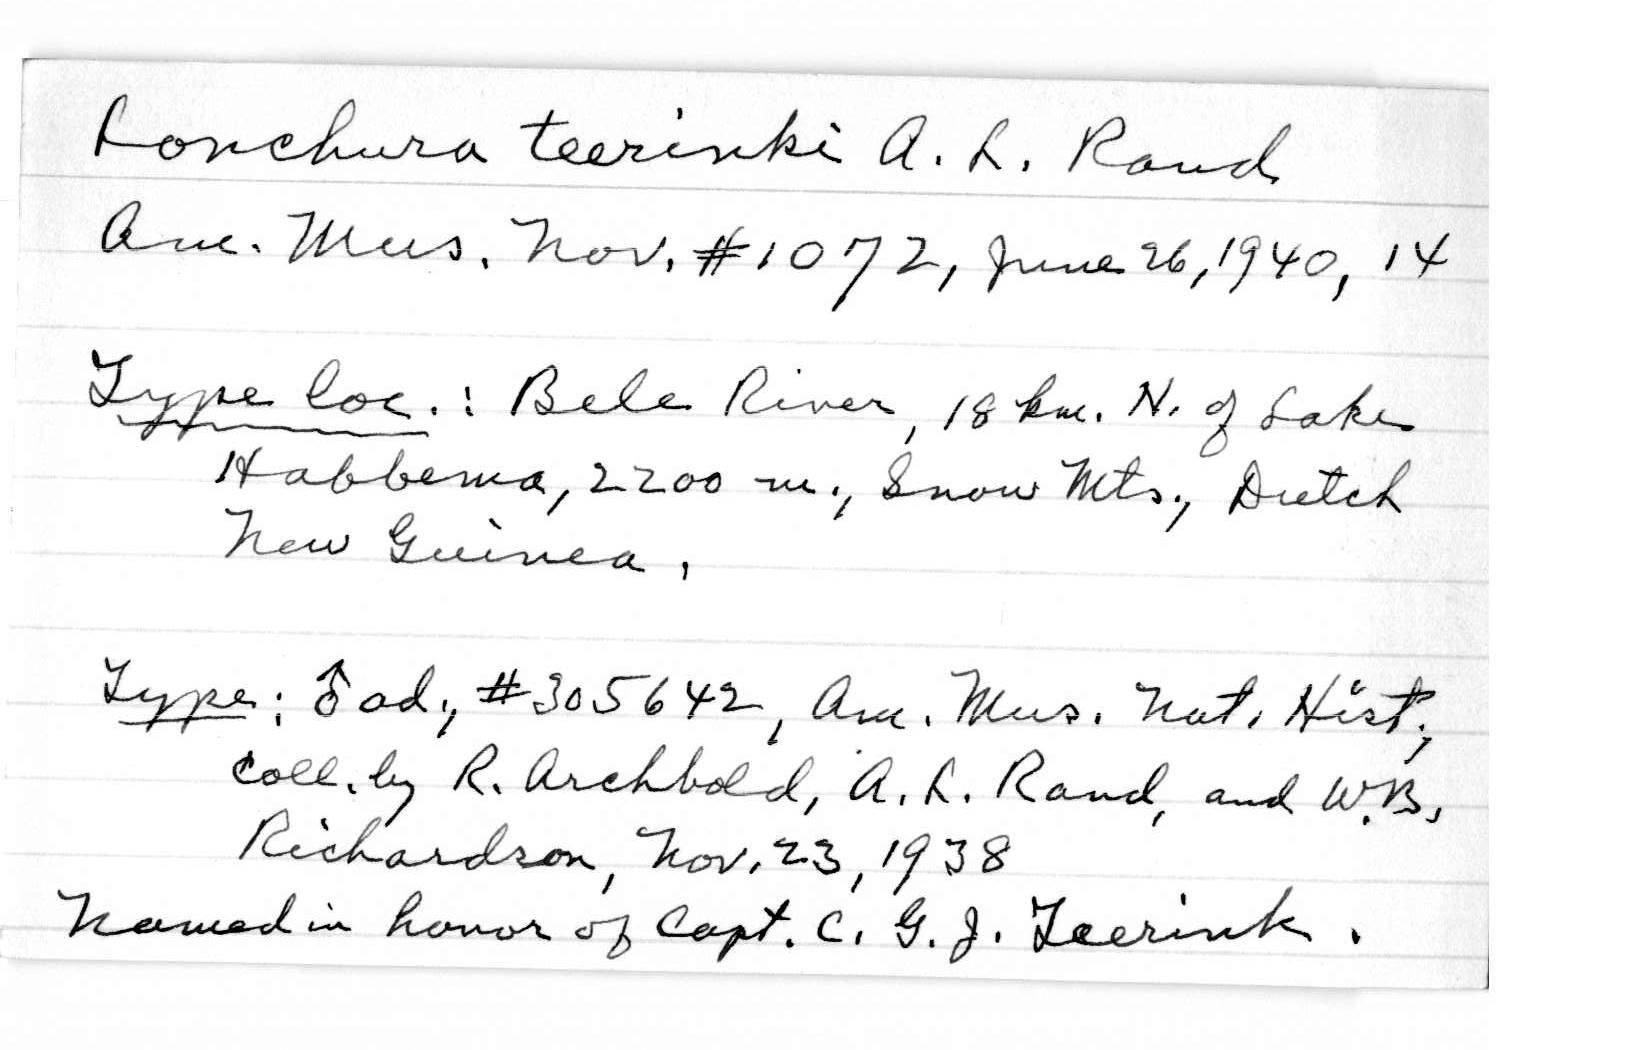 Lonchura teerinki A. L. Rand
Am. Mus. Nov. #1072, June 26, 1940, 14
Type loc.: Bele River, 18 km. N. of Lake
Habbema, 2200 m., Snow Mts., Dutch
New Guinea.
Type: ♂ ad., #305642, Am. Mus. Nat. Hist.,
coll. by R. Archbold, A. L. Rand, and W. B.
Richardson, Nov. 23, 1938
Named in honor of Capt. C. G. J. Teerink.